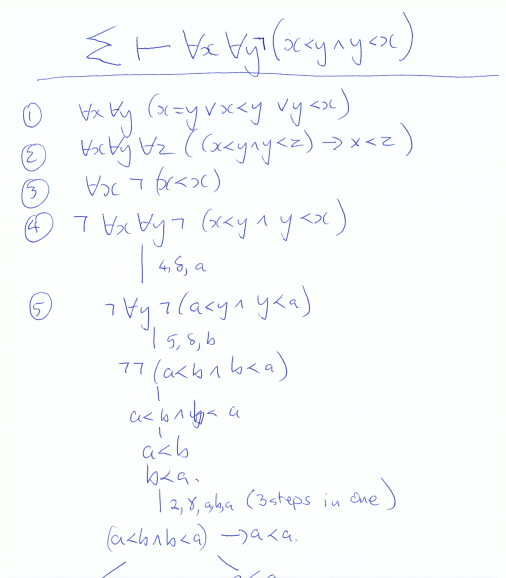 Σ ⊢ ∀x ∀y ¬(x<y ∧ y<x)
① ∀x∀y (x=y ∨ x<y ∨ y<x)
② ∀x∀y ∀z ((x<y∧y<z) → x<z)
③ ∀x ¬ (x<x)
④ ¬ ∀x ∀y ¬ (x<y ∧ y<x)
4, δ, a
⑤ ¬∀y ¬(a<y ∧ y<a)
5, δ, b
¬¬ (a<b ∧ b<a)
a<b ∧ b< a
a<b
b<a.
2, γ, a,b,a (3 steps in one)
(a<b∧b<a) → a<a.